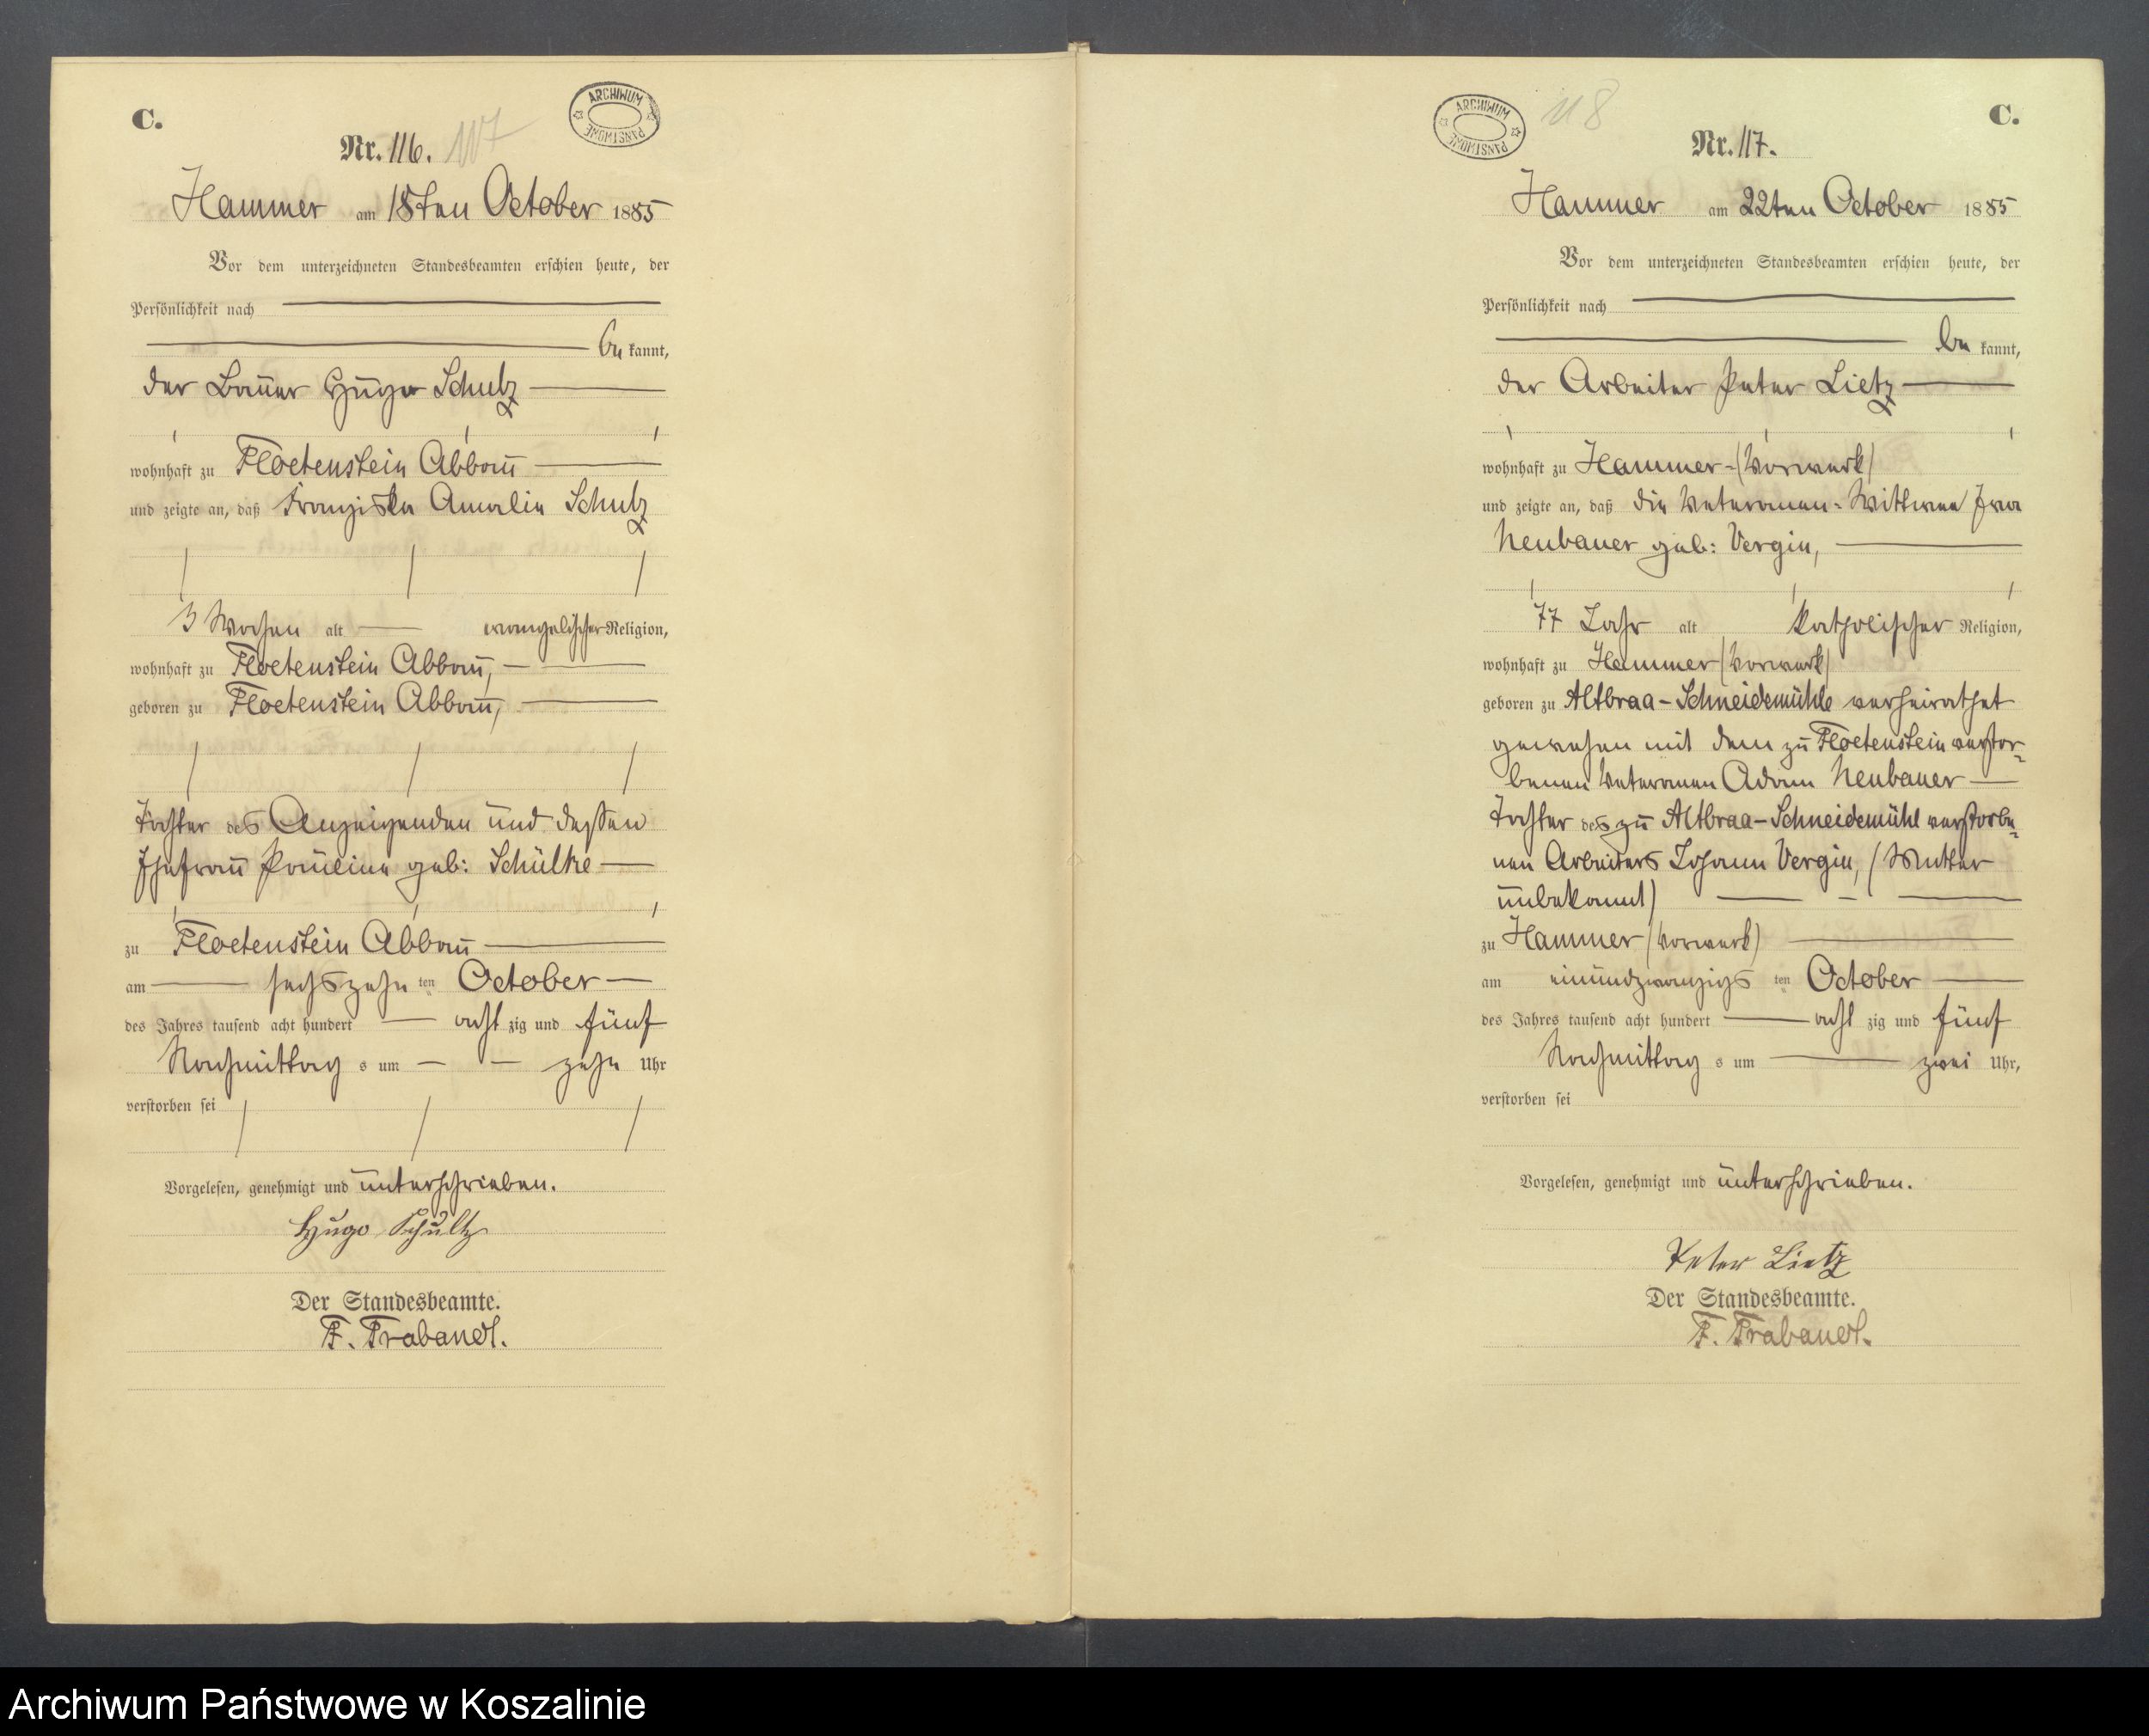 C.
ARCHIWUM PAŃSTWOWE
Nr. 116. 117
Hammer am 18ten October 1885
Vor dem unterzeichneten Standesbeamten erschien heute, der
Persönlichkeit nach
be kannt,
der Bauer Hugo Schulz
wohnhaft zu Floetenstein Abbau
und zeigte an, daß Franziska Amalie Schulz
3 Wochen alt evangelischer Religion,
wohnhaft zu Floetenstein Abbau,
geboren zu Floetenstein Abbau,
Tochter des Anzeigenden und dessen
Ehefrau Pauline geb: Schülke
zu Floetenstein Abbau
am sechszehn ten October
des Jahres tausend acht hundert acht zig und fünf
Nachmittag s um zehn Uhr
verstorben sei
Vorgelesen, genehmigt und unterschrieben.
Hugo Schultz
Der Standesbeamte.
F. Trabandt.
ARCHIWUM PAŃSTWOWE
118
C.
Nr. 117.
Hammer am 22ten October 1885
Vor dem unterzeichneten Standesbeamten erschien heute, der
Persönlichkeit nach
be kannt,
der Arbeiter Peter Lietz
wohnhaft zu Hammer-(Vorwerk)
und zeigte an, daß die Veteranen-Wittwe Eva
Neubauer geb: Vergin,
77 Jahr alt katholischer Religion,
wohnhaft zu Hammer (Vorwerk)
geboren zu Altbraa-Schneidemühle verheirathet
gewesen mit dem zu Floetenstein verstor-
benen Veteranen Adam Neubauer
Tochter des zu Altbraa-Schneidemühl verstorbe-
nen Arbeiters Johann Vergin, (Mutter
unbekannt)
zu Hammer (Vorwerk)
am einundzwanzigs ten October
des Jahres tausend acht hundert acht zig und fünf
Nachmittag s um zwei Uhr,
verstorben sei
Vorgelesen, genehmigt und unterschrieben.
Peter Lietz
Der Standesbeamte.
F. Trabandt.
Archiwum Państwowe w Koszalinie